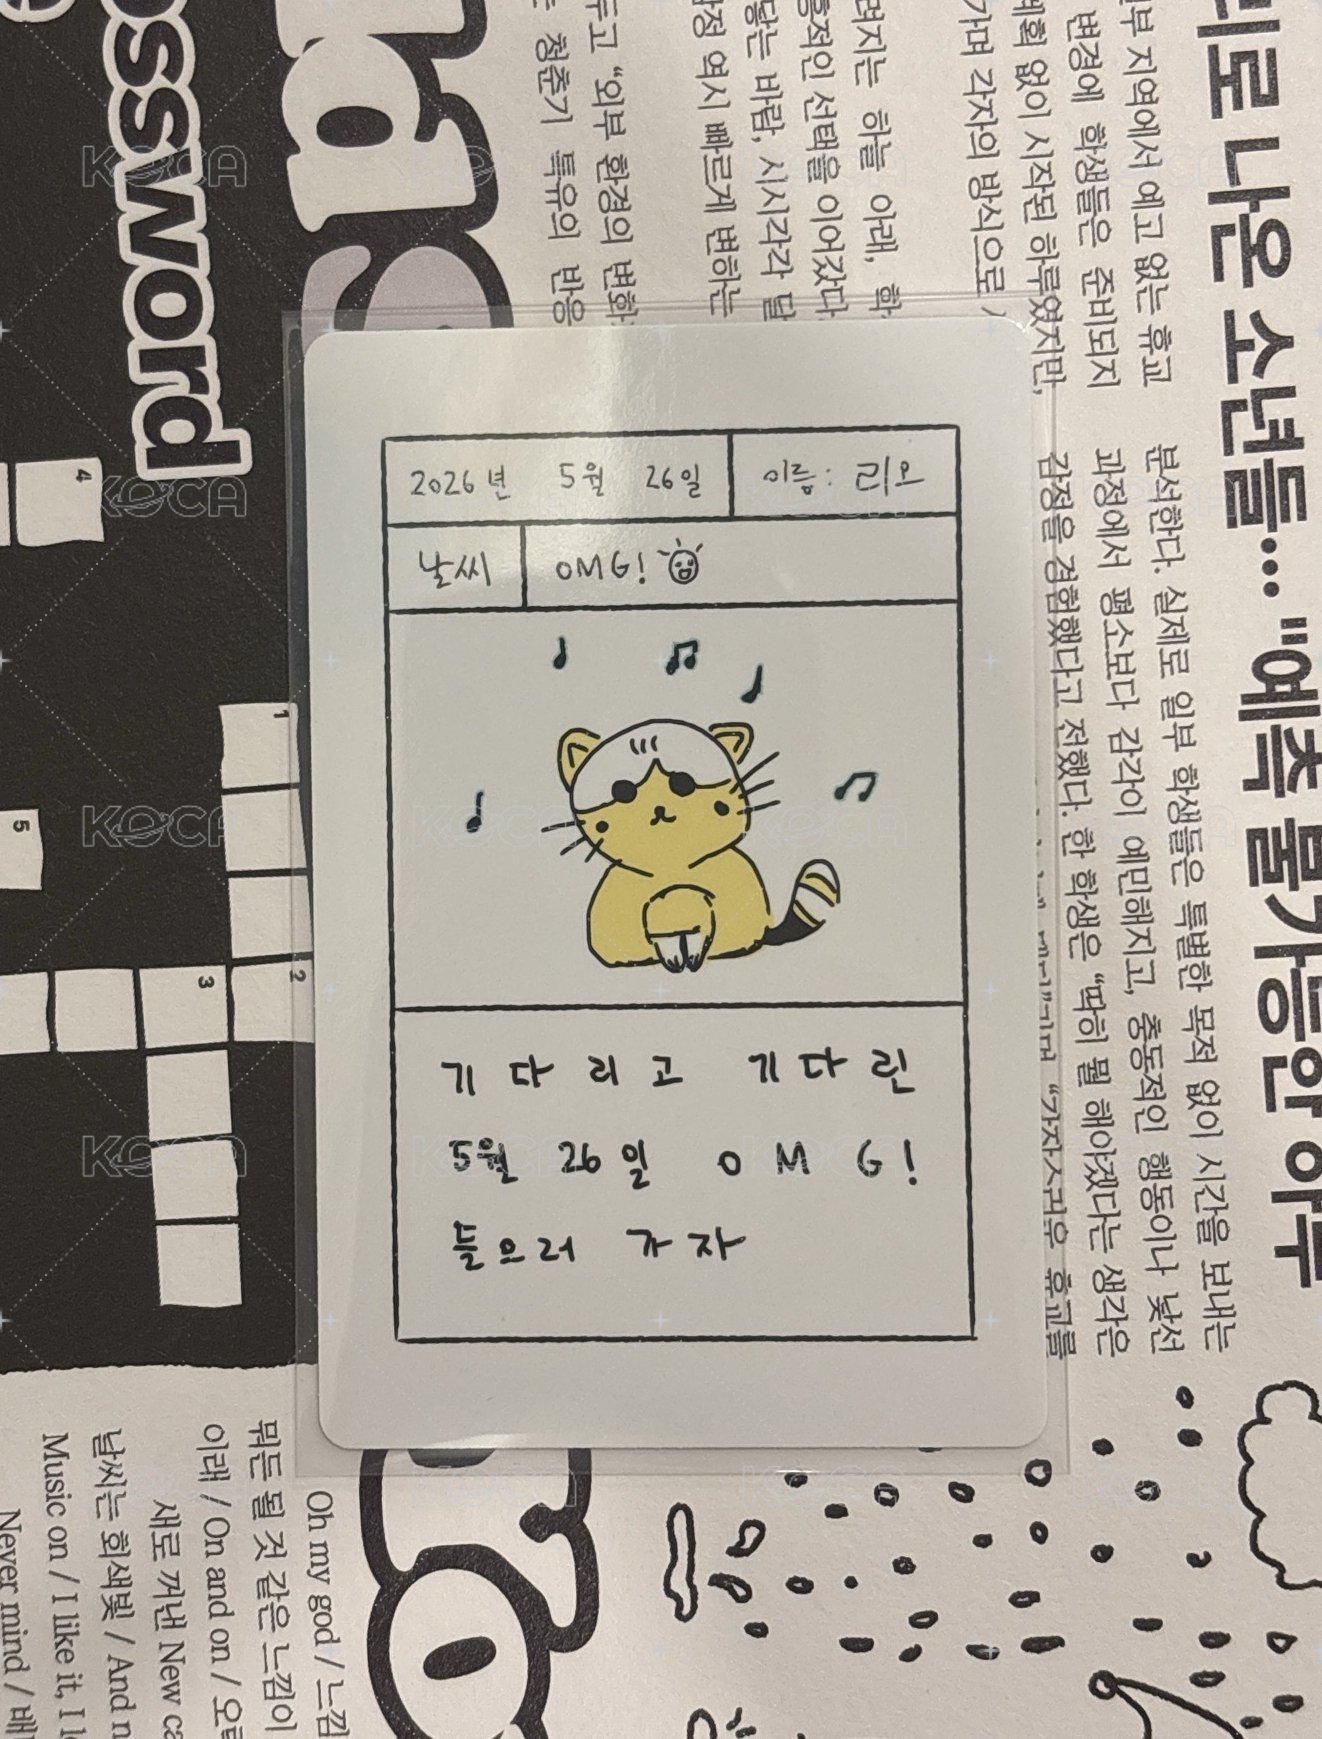 2026년 5월 26일
이름: 리오
날씨
OMG!
기다리고 기다린
5월 26일 OMG!
들으러 가자
ssword
4
1
5
3
2
나온 소년들... "예측 불가능한 하루
부 지역에서 예고 없는 휴교
변경에 학생들은 준비되지
계획 없이 시작된 하루였지만,
가며 각자의 방식으로
려지는 하늘 아래, 학
흥적인 선택을 이어갔다
닿는 바람, 시시각각 달
감정 역시 빠르게 변하는
두고 “외부 환경의 변화
청춘기 특유의 반응
분석한다. 실제로 일부 학생들은 특별한 목적 없이 시간을 보내는
과정에서 평소보다 감각이 예민해지고, 충동적인 행동이나 낯선
감정을 경험했다고 전했다. 한 학생은 “딱히 뭘 해야겠다는 생각은
휴교를
Oh my god / 느낌
뭐든 될 것 같은 느낌이
이래 / On and on / 오
새로 꺼낸 New ca
날씨는 회색빛 / And n
Music on / I like it, I l
Never mind / 배
KOCA
KOCA
KOCA
KOCA